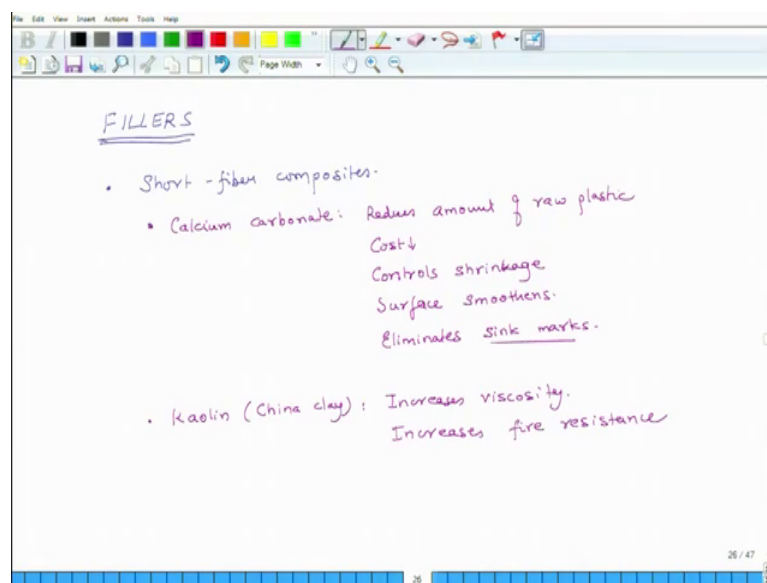 File Edit View Insert Actions Tools Help
B I
Page Width
FILLERS
• Short-fiber composites.
• Calcium carbonate: Reduces amount of raw plastic
Cost↓
Controls shrinkage
Surface smoothens.
Eliminates sink marks.
• Kaolin (China clay): Increases viscosity.
Increases fire resistance
26 / 47
26